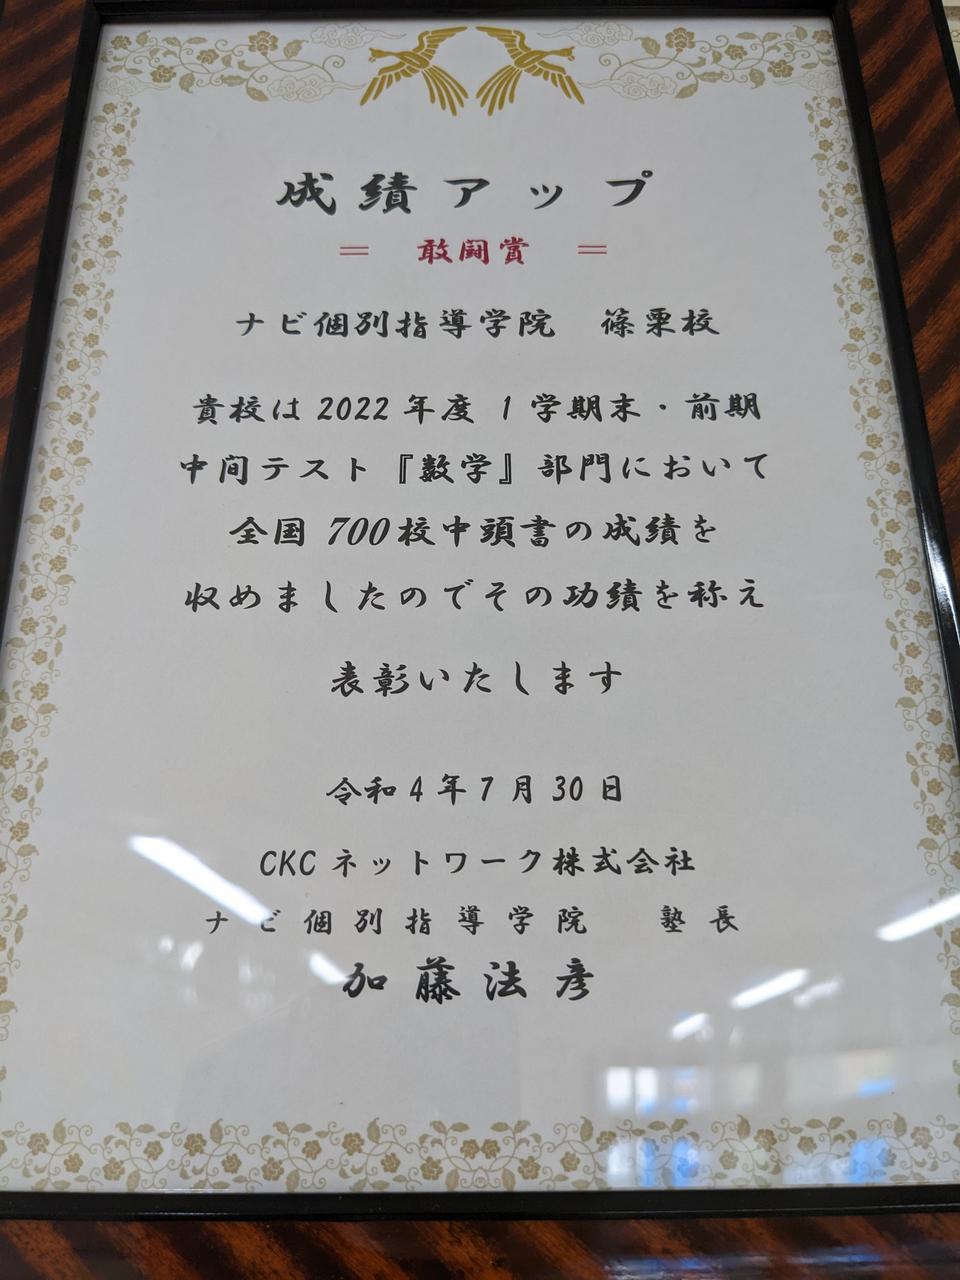 成績アップ
＝ 敢闘賞 ＝
ナビ個別指導学院 篠栗校
貴校は 2022 年度 1 学期末・前期
中間テスト『数学』部門において
全国 700校中頭書の成績を
収めましたのでその功績を称え
表彰いたします
令和 4 年 7 月 30 日
CKC ネットワーク株式会社
ナビ個別指導学院 塾長
加藤法彦